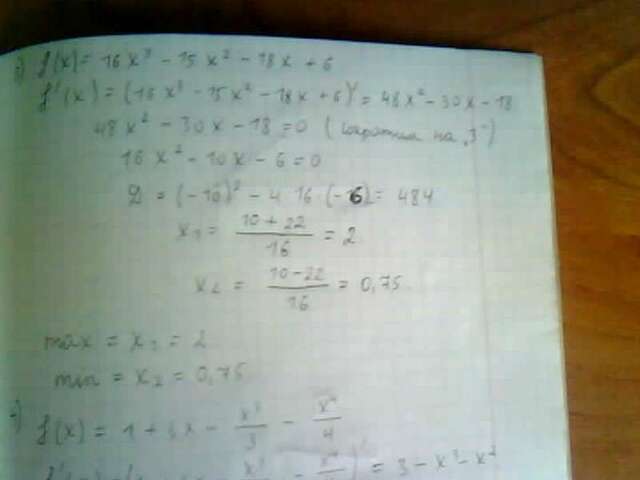 f(x) = 16x³ - 15x² - 18x + 6
f'(x) = (16x³ - 15x² - 18x + 6)' = 48x² - 30x - 18
48x² - 30x - 18 = 0 (сократим на "3")
16x² - 10x - 6 = 0
D = (-10)² - 4 16 (-6) = 484
x₁ = (10 + 22)/16 = 2
x₂ = (10 - 22)/16 = 0,75
max = x₁ = 2
min = x₂ = 0,75
f(x) = 1 + 3x - x³/3 - x⁴/4
= 3 - x³ - x²